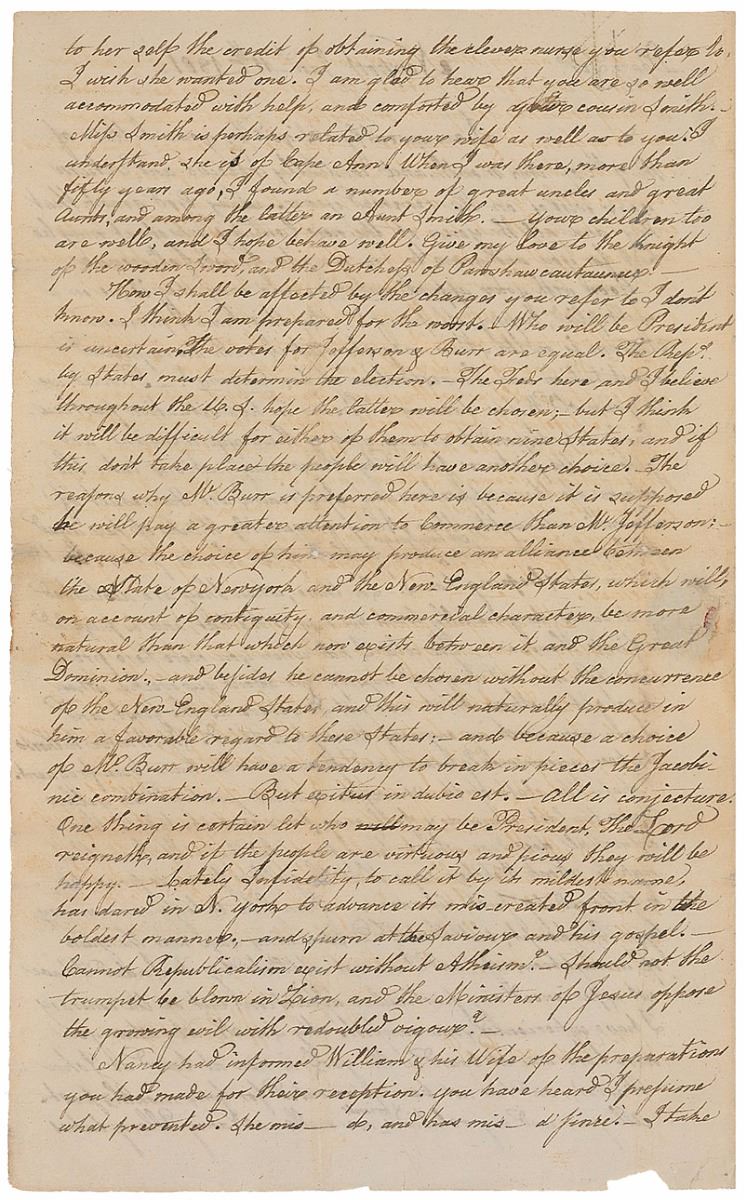 to her self the credit of obtaining the clever nurse you refer to.
I wish she wanted one. I am glad to hear that you are so well
accommodated with help, and comforted by your cousin Smith. –
Miss Smith is perhaps related to your wife as well as to you. I
understand she is of Cape Ann. When I was there, more than
fifty years ago, I found a number of great uncles and great
Aunts, and among the latter an Aunt Smith. – your children too
are well, and I hope behave well. Give my love to the Knight
of the wooden Sword, and the Dutchess of –
How I shall be affected by the changes you refer to I don't
know. I think I am prepared for the worst. – Who will be President
is uncertain, the votes for Jefferson & Burr are equal. The Reps.
by States must determin the election. – The Feds here and I believe
throughout the U. S. hope the latter will be chosen; – but I think
it will be difficult for either of them to obtain nine States, and if
this don't take place the people will have another choice. – The
reasons why Mr. Burr is preferred here is because it is supposed
he will pay a greater attention to Commerce than Mr. Jefferson; –
because the choice of him may produce an alliance between
the State of Newyork and the New England States, which will,
on account of contiguity, and commercial character, be more
natural than that which now exists between it and the Great
Dominion., – and besides he cannot be chosen without the concurrence
of the New England States, and this will naturally produce in
him a favorable regard to these States; – and because a choice
of Mr. Burr will have a tendency to break in pieces the Jacobi-
nic combination. – But exitus in dubio est. – All is conjecture.
One thing is certain let who will may be President, The Lord
reigneth, and if the people are virtuous and pious they will be
happy. – Lately Infidelity, to call it by its mildest name,
has dared in N. york to advance its mis-created front in the
boldest manner, – and spurn at the Saviour and his gospel. –
Cannot Republicalism exist without Atheism? – Should not the
trumpet be blown in Zion, and the Ministers of Jesus oppose
the growing evil with redoubled vigour? –
Nancy had informed William & his Wife of the preparations
you had made for their reception. you have heard I presume
what prevented. She mis— d, and has mis— d since. – I take